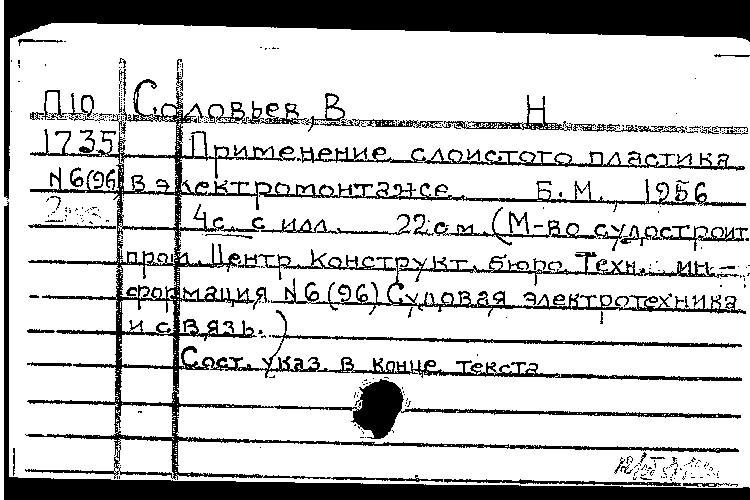 П10 Соловьев, В Н
1735 Применение слоистого пластика
N6(96) в электромонтаже. Б.М., 1956
2экз. 4с. с илл. 22см. (М-во судостроит
пром. Центр. Конструкт. бюро. Техн. ин-
формация N6(96) Судовая электротехника
и связь.)
Сост. указ. в конце текста